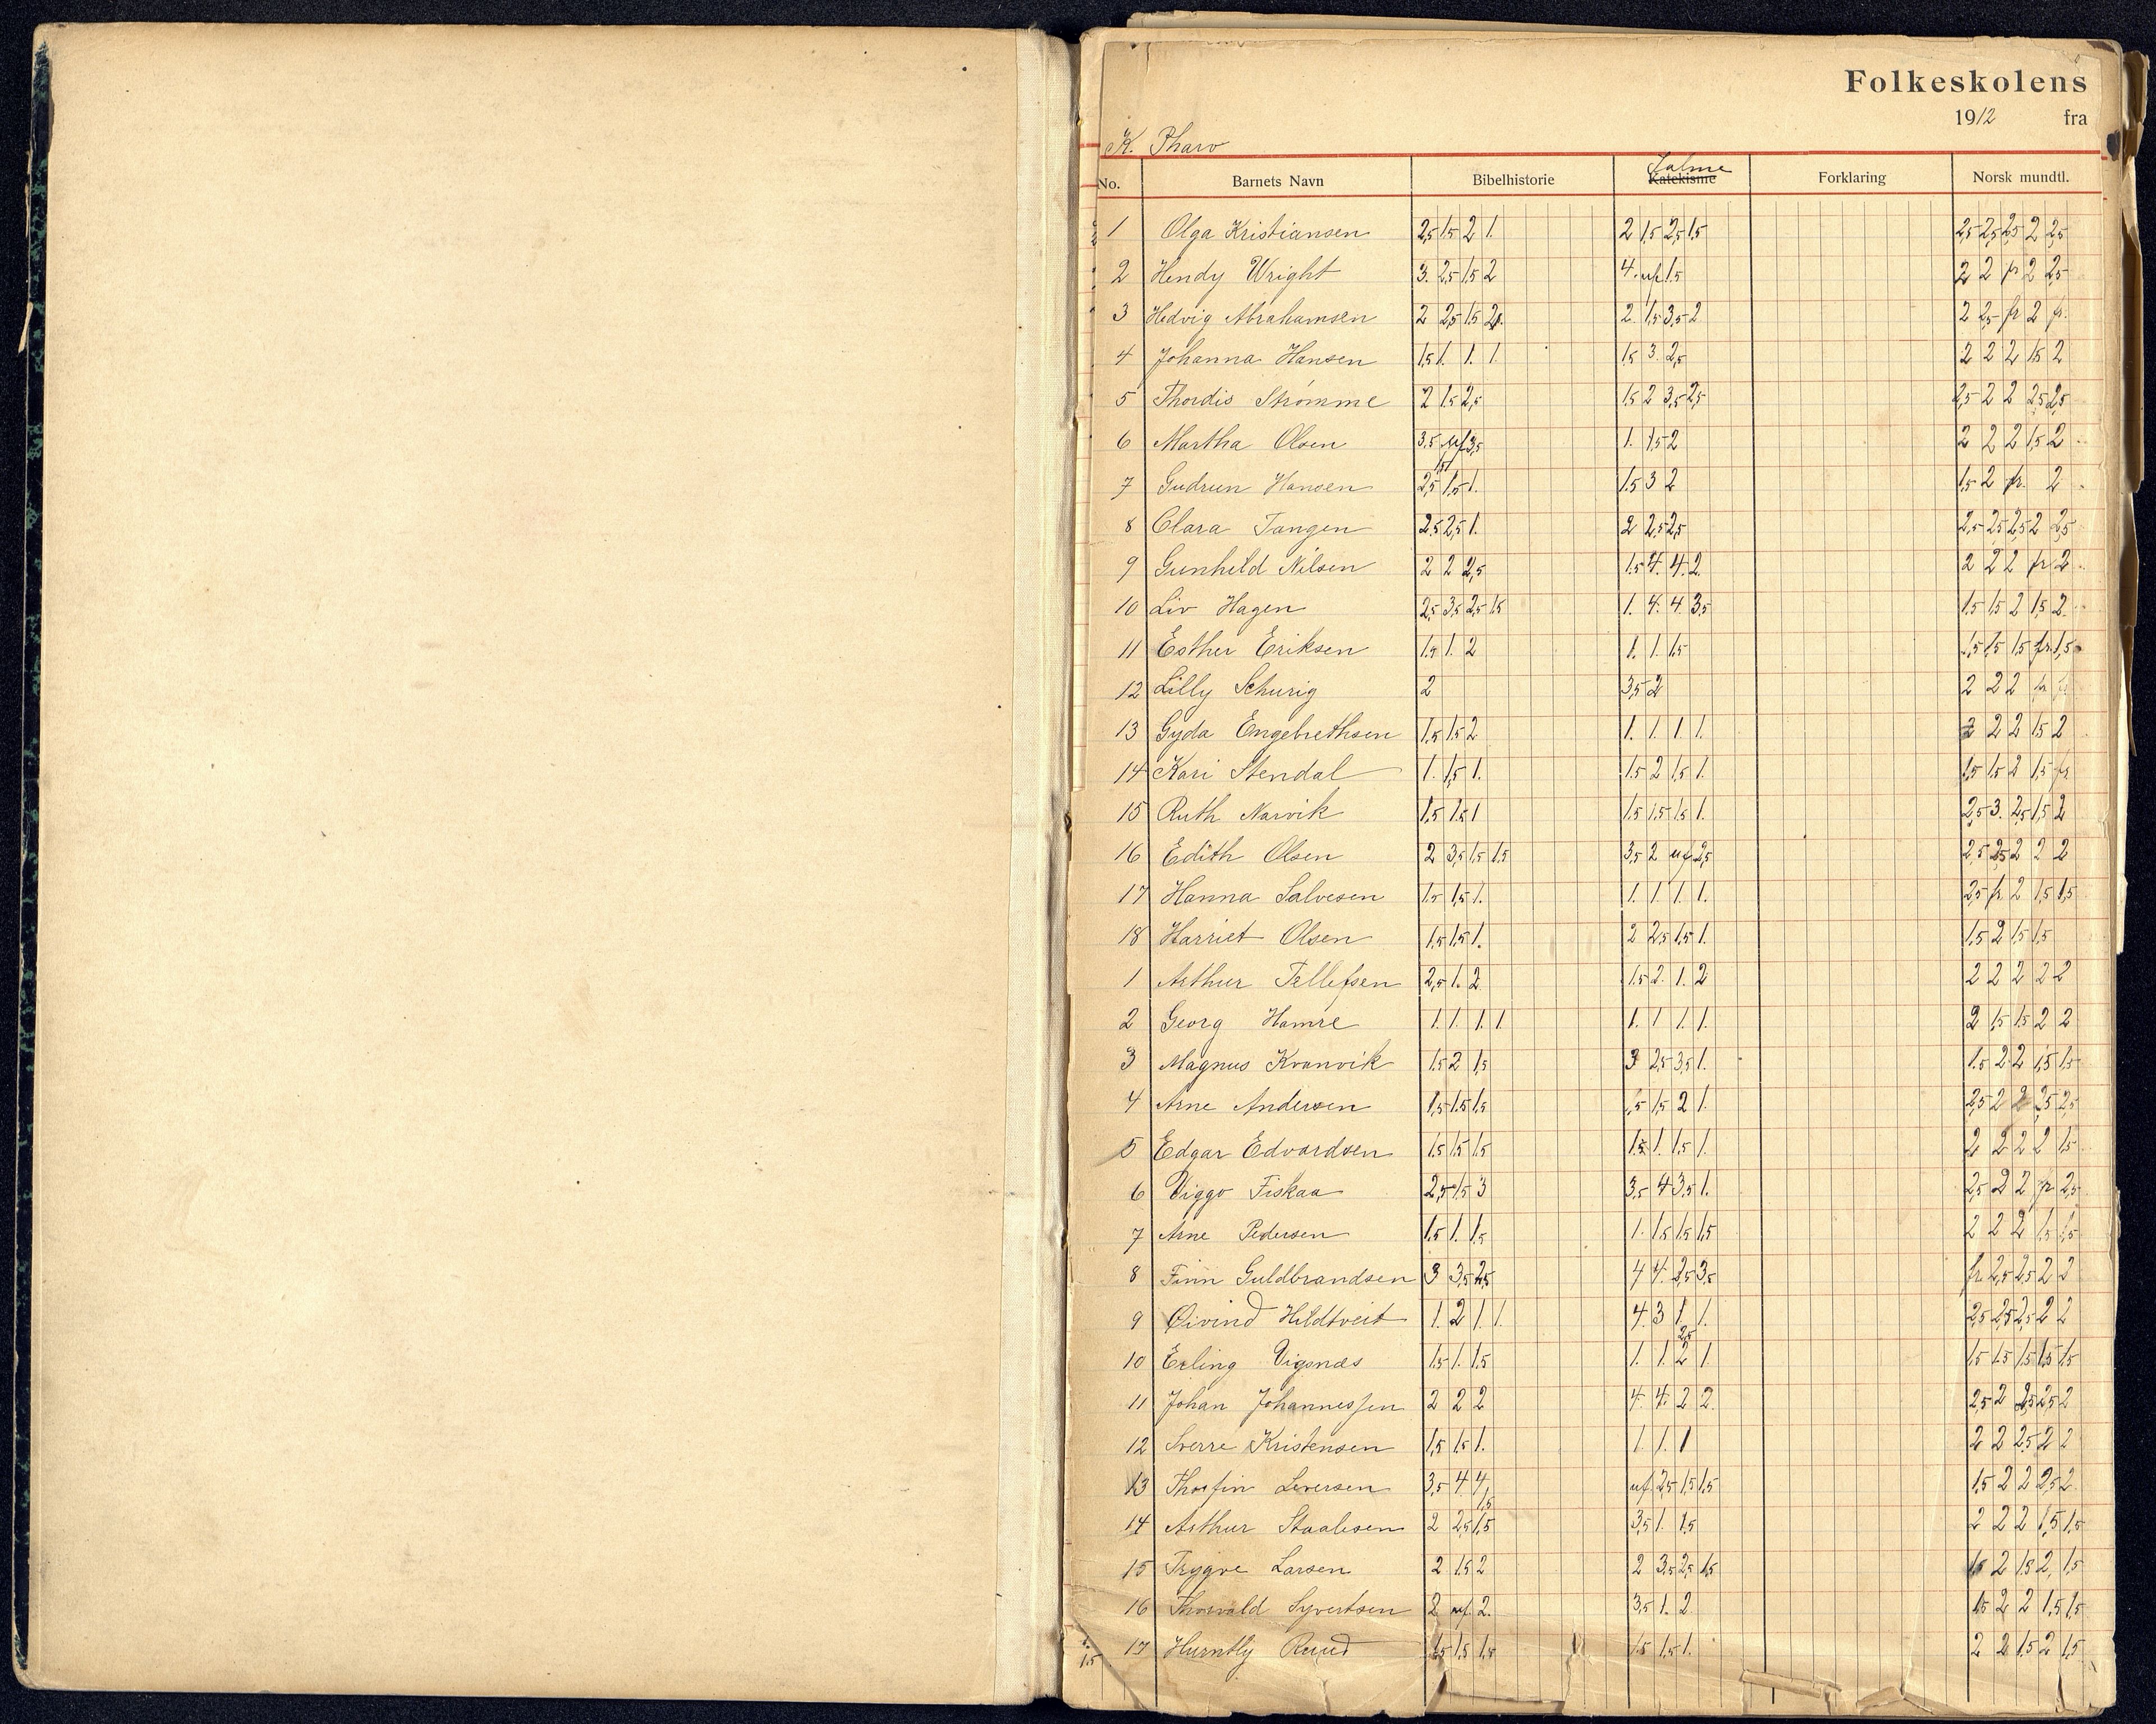 Folkeskolens
1912 fra
K. Pharo
No. Barnets Navn Bibelhistorie Katekisme Salme Forklaring Norsk mundtl.
1 Olga Kristiansen 2,5 1,5 2 1. 2 1,5 2,5 1,5 2,5 2,5 2,5 2 2,5
2 Hendy Wright 3. 2,5 1,5 2 4. uf 1,5 2 2 fr 2 2,5
3 Hedvig Abrahamsen 2 2,5 1,5 2. 1,5 3,5 2 2 2,5 fr 2 fr.
4 Johanna Hansen 1,5 1. 1. 1. 1,5 3. 2,5 2 2 2 1,5 2
5 Thordis Strømme 2 1,5 2,5 1,5 2 3,5 2,5 2,5 2 2 2,5 2,5
6 Martha Olsen 3,5 uf 3,5 1. 1,5 2 2 2 2 1,5 2
7 Gudrun Hansen 2,5 1,5 1. 1,5 3 2 1,5 2 fr. 2
8 Clara Tangen 2,5 2,5 1. 2 2,5 2,5 2,5 2,5 2,5 2 2,5
9 Gunhild Nilsen 2 2 2,5 1,5 4. 4. 2. 2 2 2 fr 2
10 Liv Hagen 2,5 3,5 2,5 1,5 1. 4. 4. 3,5 1,5 1,5 2 1,5 2
11 Esther Eriksen 1. 2 1. 1. 1,5 1,5 1,5 1,5 fr. 1,5
12 Lilly Schurig 2 3,5 2 2 2 2 fr
13 Gyda Engebrethsen 1,5 1,5 2 1. 1. 1. 1. 2 2 2 1,5 2
14 Kari Stendal 1. 1,5 1. 1,5 2 1,5 1. 1,5 1,5 2 1,5 fr
15 Ruth Narvik 1,5 1,5 1 1,5 1,5 1,5 1. 2,5 3. 2,5 1,5 2
16 Edith Olsen 2 3,5 1,5 1,5 3,5 2 uf 2,5 2,5 2,5 2 2 2
17 Hanna Salvesen 1,5 1,5 1. 1. 1. 1. 1. 2,5 fr 2 1,5 1,5
18 Harriet Olsen 1,5 1,5 1. 2 2,5 1,5 1. 1,5 2 1,5 1,5
1 Arthur Tellefsen 2,5 1. 2 1,5 2. 1. 2 2 2 2 2 2
2 Georg Hamre 1. 1. 1. 1 1. 1 1. 1. 2 1,5 1,5 2 2
3 Magnus Kvanvik 1,5 2 1,5 3 2,5 3,5 1. 1,5 2 2 1,5 1,5
4 Arne Andersen 1,5 1,5 1,5 1,5 1,5 2 1. 2,5 2 2 2,5 2,5
5 Edgar Edvardsen 1,5 1,5 1,5 1,5 1. 1,5 1. 2 2 2 2 1,5
6 Viggo Fiskaa 2,5 1,5 3 3,5 4 3,5 1. 2,5 2 2 fr 2,5
7 Arne Pedersen 1,5 1. 1,5 1. 1,5 1,5 1,5 2 2 2 1,5 1,5
8 Finn Guldbrandsen 3 3,5 2,5 4 4. 2,5 3,5 fr. 2,5 2,5 2 2
9 Øivind Hildtveit 1. 2 1. 1. 4. 3 1. 1. 2,5 2,5 2,5 2 2
10 Erling Vigsnæs 1,5 1. 1,5 1. 1. 2 1. 1,5 1,5 1,5 1,5 1,5
11 Johan Johannessen 2 2 2 4. 4. 2 2. 2,5 2 2,5 2,5 2
12 Sverre Kristensen 1,5 1,5 1. 1. 1. 1 2 2 2,5 2 2
13 Thorfin Syversen 3,5 4 4 uf 2,5 1,5 1,5 1,5 2 2 2,5 2
14 Arthur Staalesen 2 2,5 1,5 3,5 1. 1,5 2 2 2 1,5 1,5
15 Trygve Larsen 2 1,5 2 2 3,5 2,5 1,5 1,5 2 1,5 2 1,5
16 Thorvald Syvertsen 2 uf. 2. 3,5 1. 2 1,5 2 2 1,5 1,5
17 Huntly Ruud 1,5 1,5 1,5 1,5 1,5 1. 2 2 1,5 2 1,5